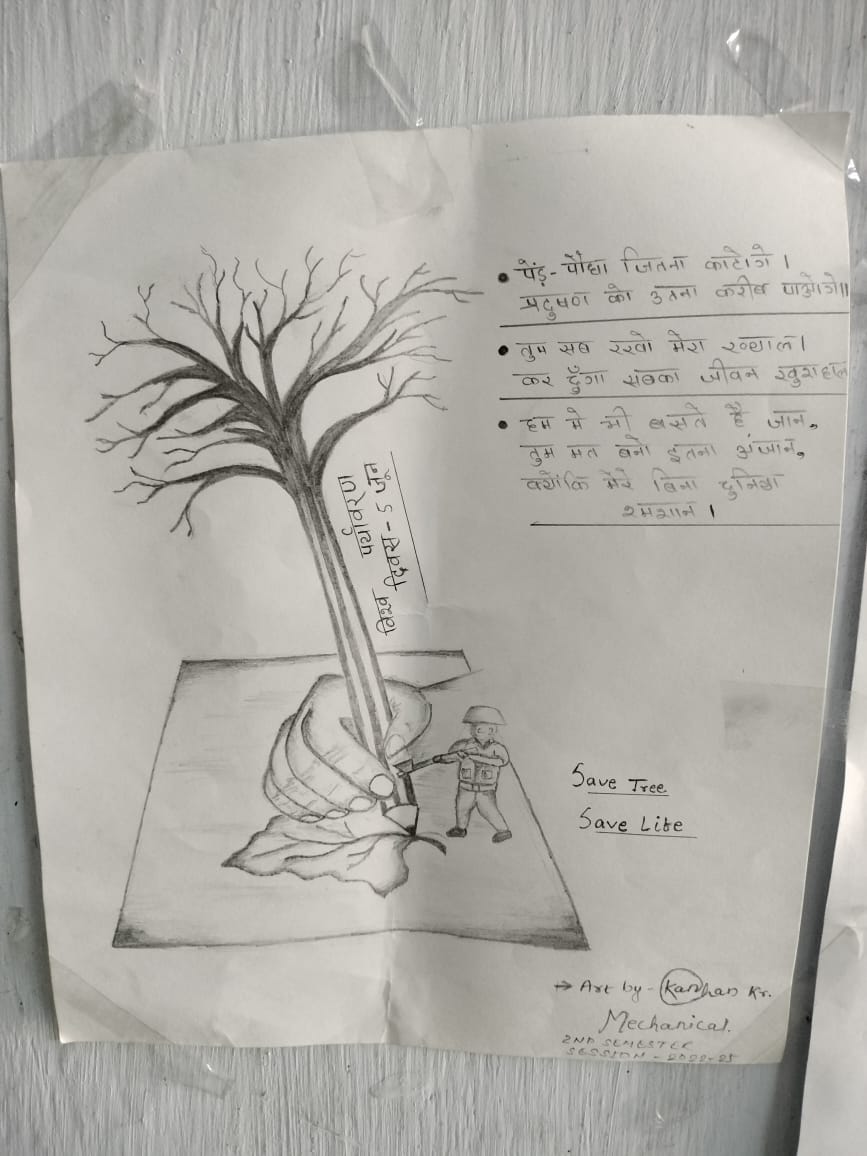 पेंड़-पौधा जितना काटोगे ।
प्रदुषण को उतना करीब पाओगे॥
तुम सब रखो मेरा ख्याल।
कर दुँगा सबका जीवन खुशहाल
हम मे भी बसते है जान,
तुम मत बनो इतना अंजान,
क्योंकि मेरे बिना दुनिया
श्मशान ।
विश्व पर्यावरण
दिवस-5 जून
Save Tree
Save Life
→ Art by - Kanhan Kr.
Mechanical.
2ND SEMESTER
SESSION - 2022-25